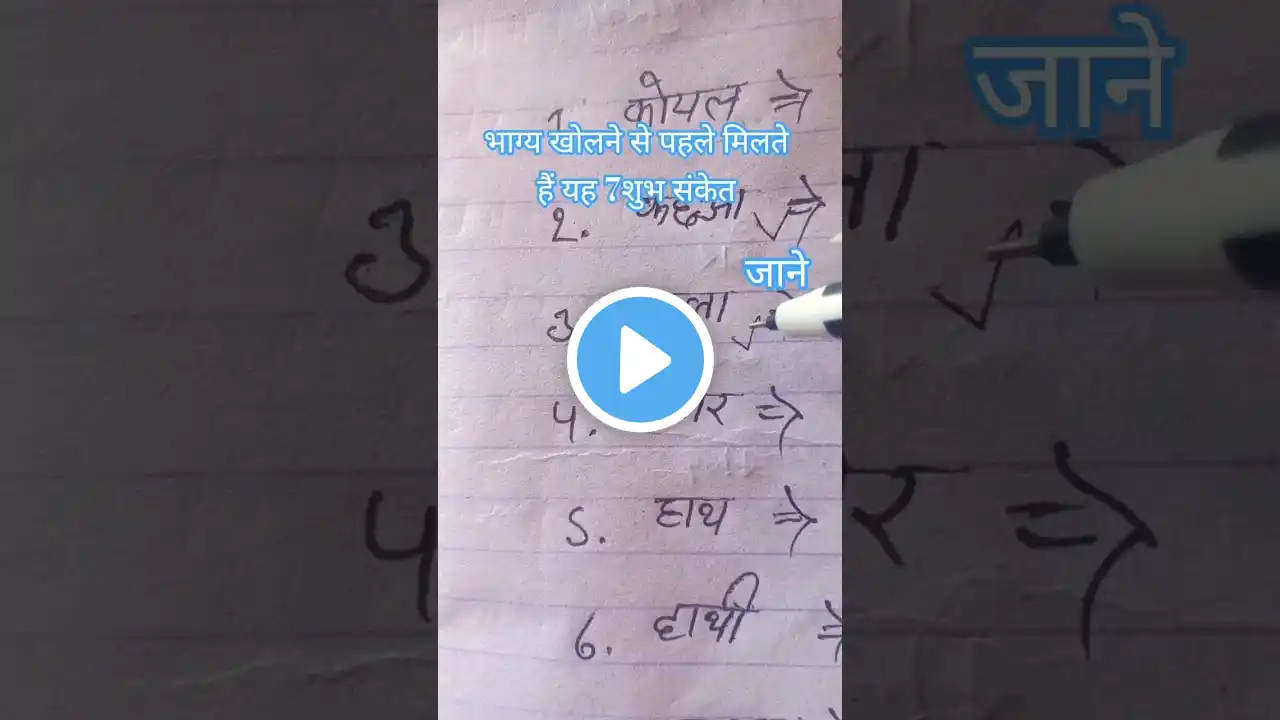 जाने
1. कोयल ⇒
भाग्य खोलने से पहले मिलते
हैं यह 7शुभ संकेत
2. कछुआ ⇒
जाने
3.
4. ⇒
5. हाथ ⇒
6. हाथी ⇒